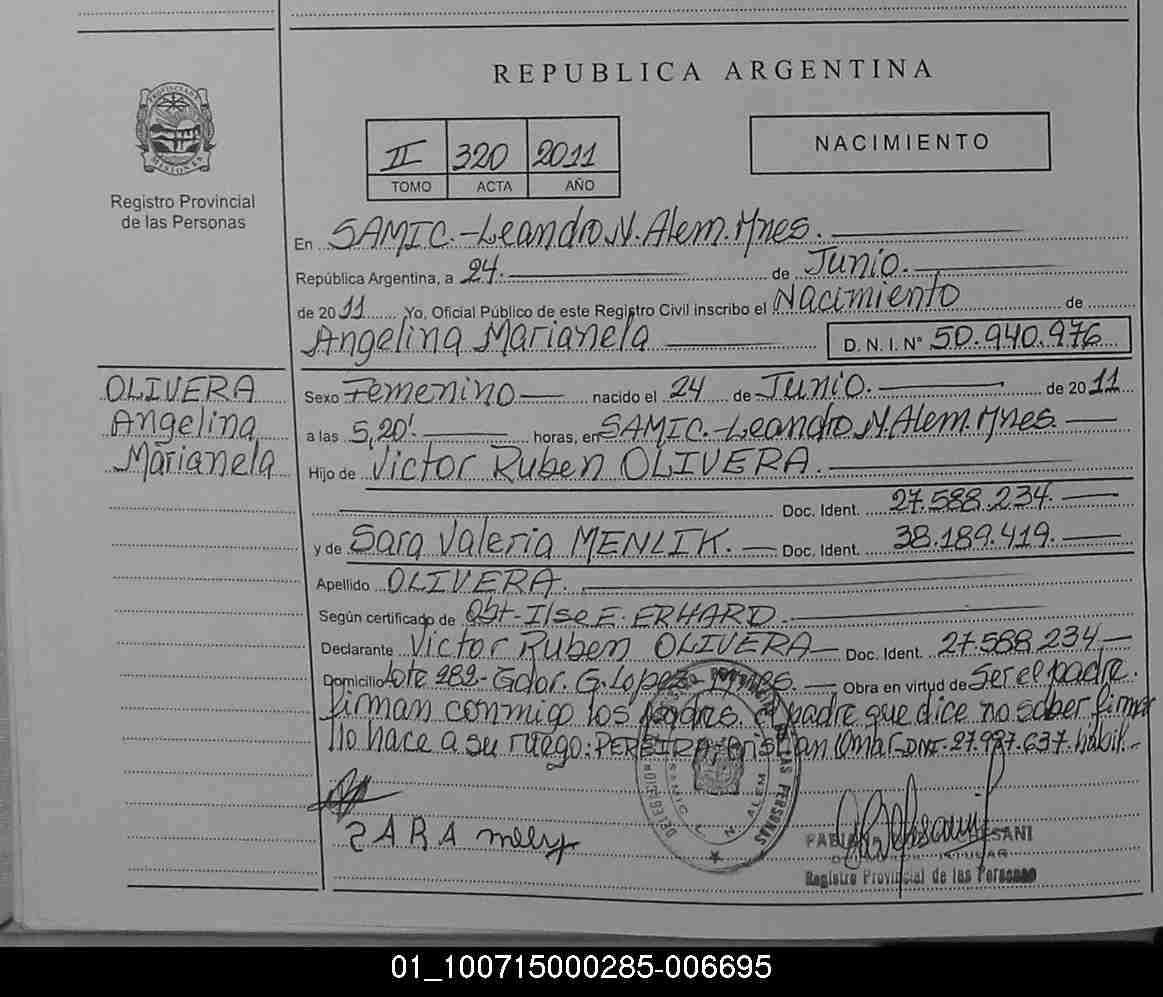 REPUBLICA ARGENTINA
PROVINCIA DE MISIONES
Registro Provincial
de las Personas
II 320 2011
TOMO ACTA AÑO
NACIMIENTO
En SAMIC.-Leandro N. Alem. Mnes.
República Argentina, a 24. de Junio.
de 2011 Yo, Oficial Público de este Registro Civil inscribo el Nacimiento de
Angelina Marianela D. N. I. N° 50.940.976
OLIVERA
Angelina
Marianela
Sexo Femenino nacido el 24 de Junio. de 2011
a las 5,20'. horas, en SAMIC.-Leandro N. Alem. Mnes.
Hijo de Victor Ruben OLIVERA.
Doc. Ident. 27.588.234.
y de Sara Valeria MENLIK. Doc. Ident. 38.189.419.
Apellido OLIVERA.
Según certificado de Obt-Ilse E. ERHARD.
Declarante Victor Ruben OLIVERA Doc. Ident. 27.588.234
Domicilio Lote 282- Gdor. G. Lopez- Mnes. Obra en virtud de Ser el padre.
firman conmigo los padres. el padre que dice no saber firmar
lo hace a su ruego: PEREIRA, Cristian Omar-DNI-27.987.637. habil.-
SARA
DELEGACION REGISTRO PROVINCIAL DE LAS PERSONAS
SAMIC L. N. ALEM
Registro Provincial de las Personas
01_100715000285-006695